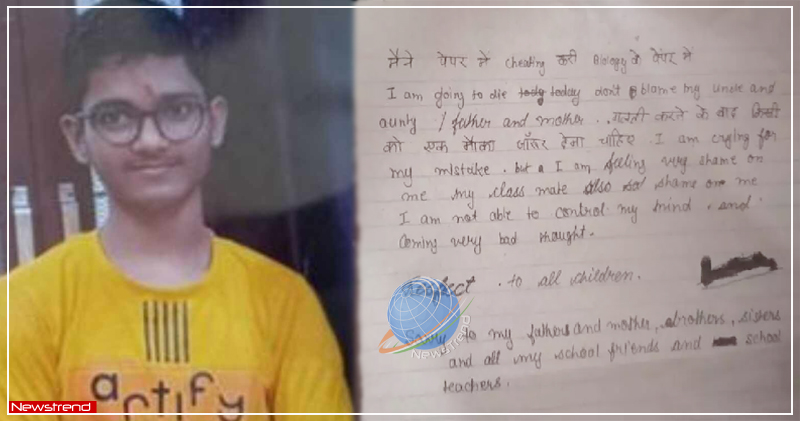 मैने पेपर में cheating करी Biology के पेपर में
I am going to die today don't blame my uncle and
aunty / father and mother . गलती करने के बाद किसी
को एक मौका जरूर देना चाहिए . I am crying for
my mistake . but I am feeling very shame on
me my class mate also shame on me
I am not able to control my mind . and
coming very bad thought .
. to all children .
Sorry to my fathers and mother, brothers, sisters
and all my school friends and school
teachers .
artify
Newstrend
Newstrend